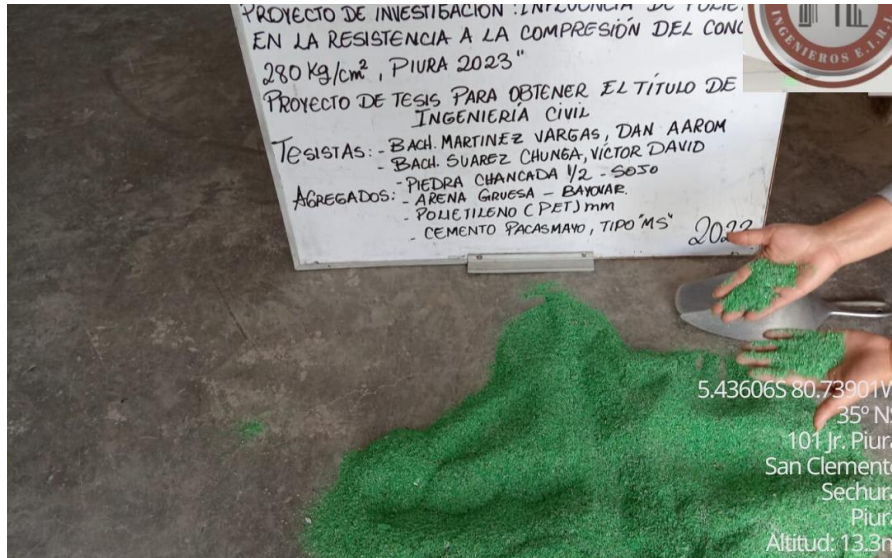 PROYECTO DE INVESTIGACIÓN: INFLUENCIA DE
EN LA RESISTENCIA A LA COMPRESIÓN DEL
280 Kg/cm², PIURA 2023"
PROYECTO DE TESIS PARA OBTENER EL TÍTULO DE
INGENIERÍA CIVIL
TESISTAS: - BACH. MARTINEZ VARGAS, DAN AAROM
- BACH. SUAREZ CHUNGA, VÍCTOR DAVID
AGREGADOS: - PIEDRA CHANCADA 1/2 - SOJO
- ARENA GRUESA - BAYOVAR.
- POLIETILENO (PET) mm
- CEMENTO PACASMAYO, TIPO "MS"
INGENIEROS E.I.R.
5.43606S 80.73901W
35º
101 Jr.
San
Altitud: 13.3